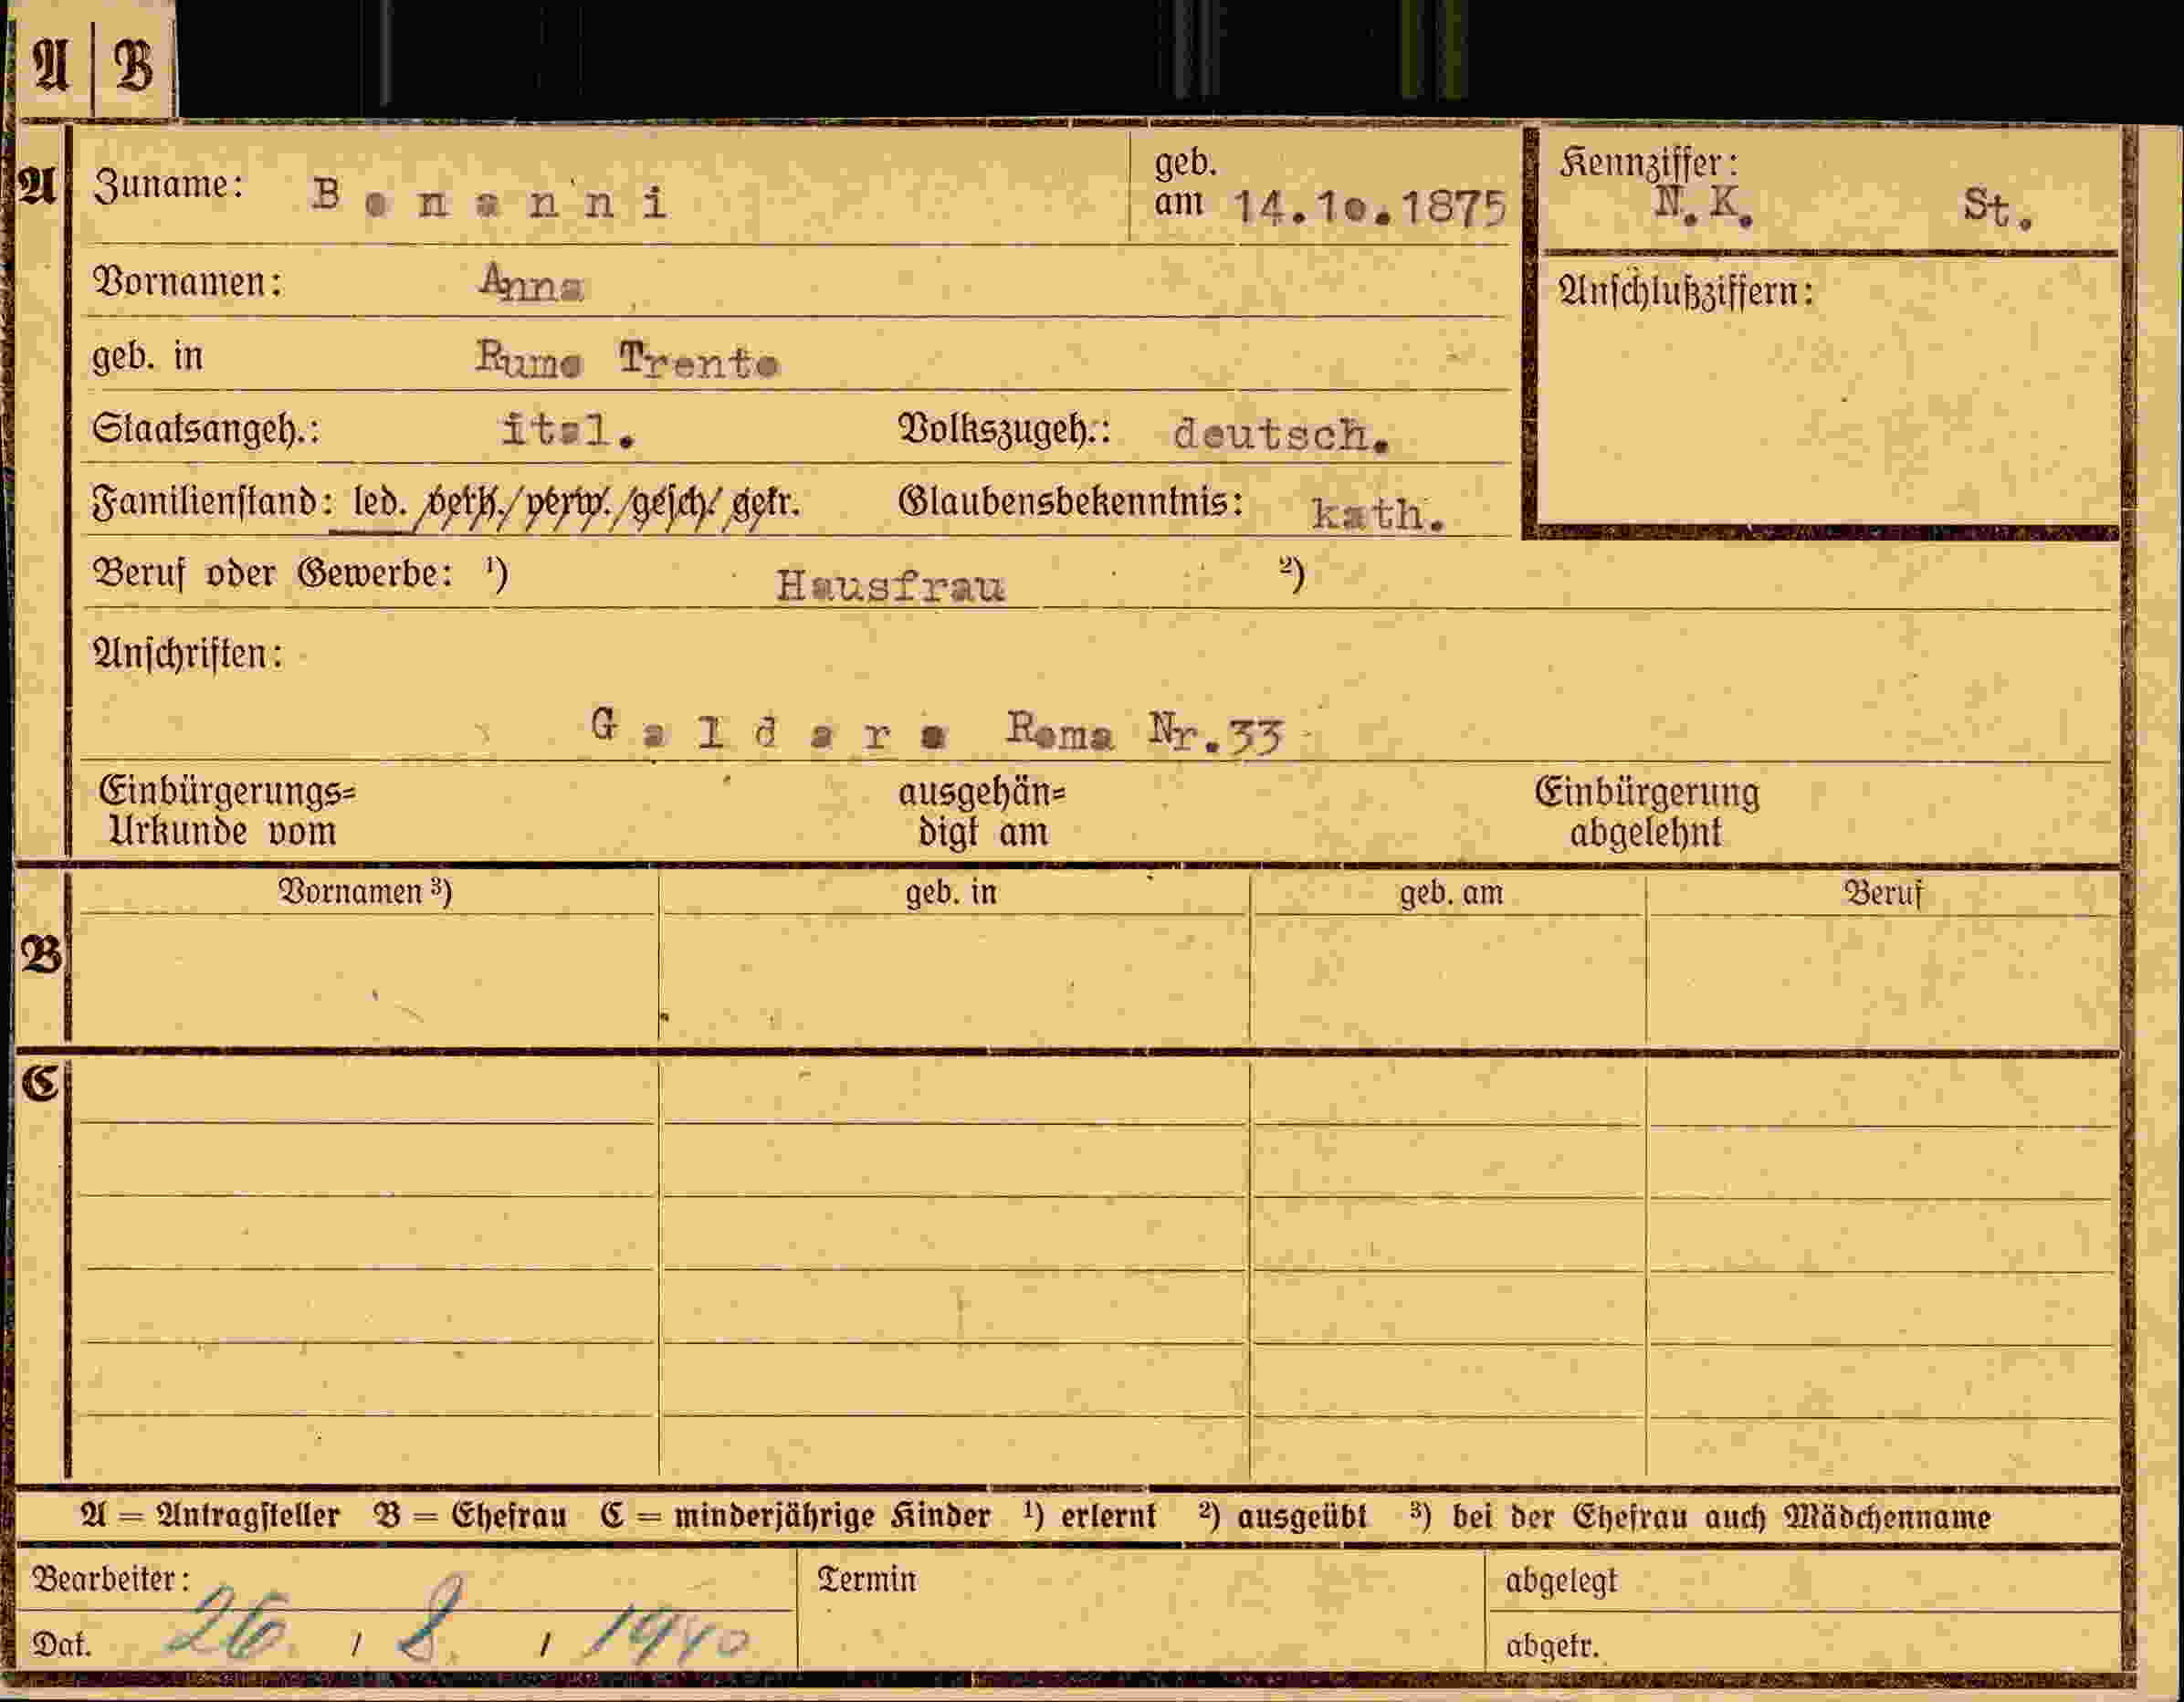 A | B
A Zuname: B o n a n n i geb. am 14.1o.1875
Kennziffer: N.K. St.
Vornamen: Anna
Anschlußziffern:
geb. in Rumo Trento
Staatsangeh.: ital. Volkszugeh.: deutsch.
Familienstand: led. verh./verw./gesch/getr. Glaubensbekenntnis: kath.
Beruf oder Gewerbe: ¹) Hausfrau ²)
Anschriften:
G a l d a r o Roma Nr.33
Einbürgerungs= ausgehän= Einbürgerung
Urkunde vom digt am abgelehnt
Vornamen ³) geb. in geb. am Beruf
B
C
A = Antragsteller B = Ehefrau C = minderjährige Kinder ¹) erlernt ²) ausgeübt ³) bei der Ehefrau auch Mädchenname
Bearbeiter: Termin abgelegt
Dat. 26. / 8. / 1940 abgetr.